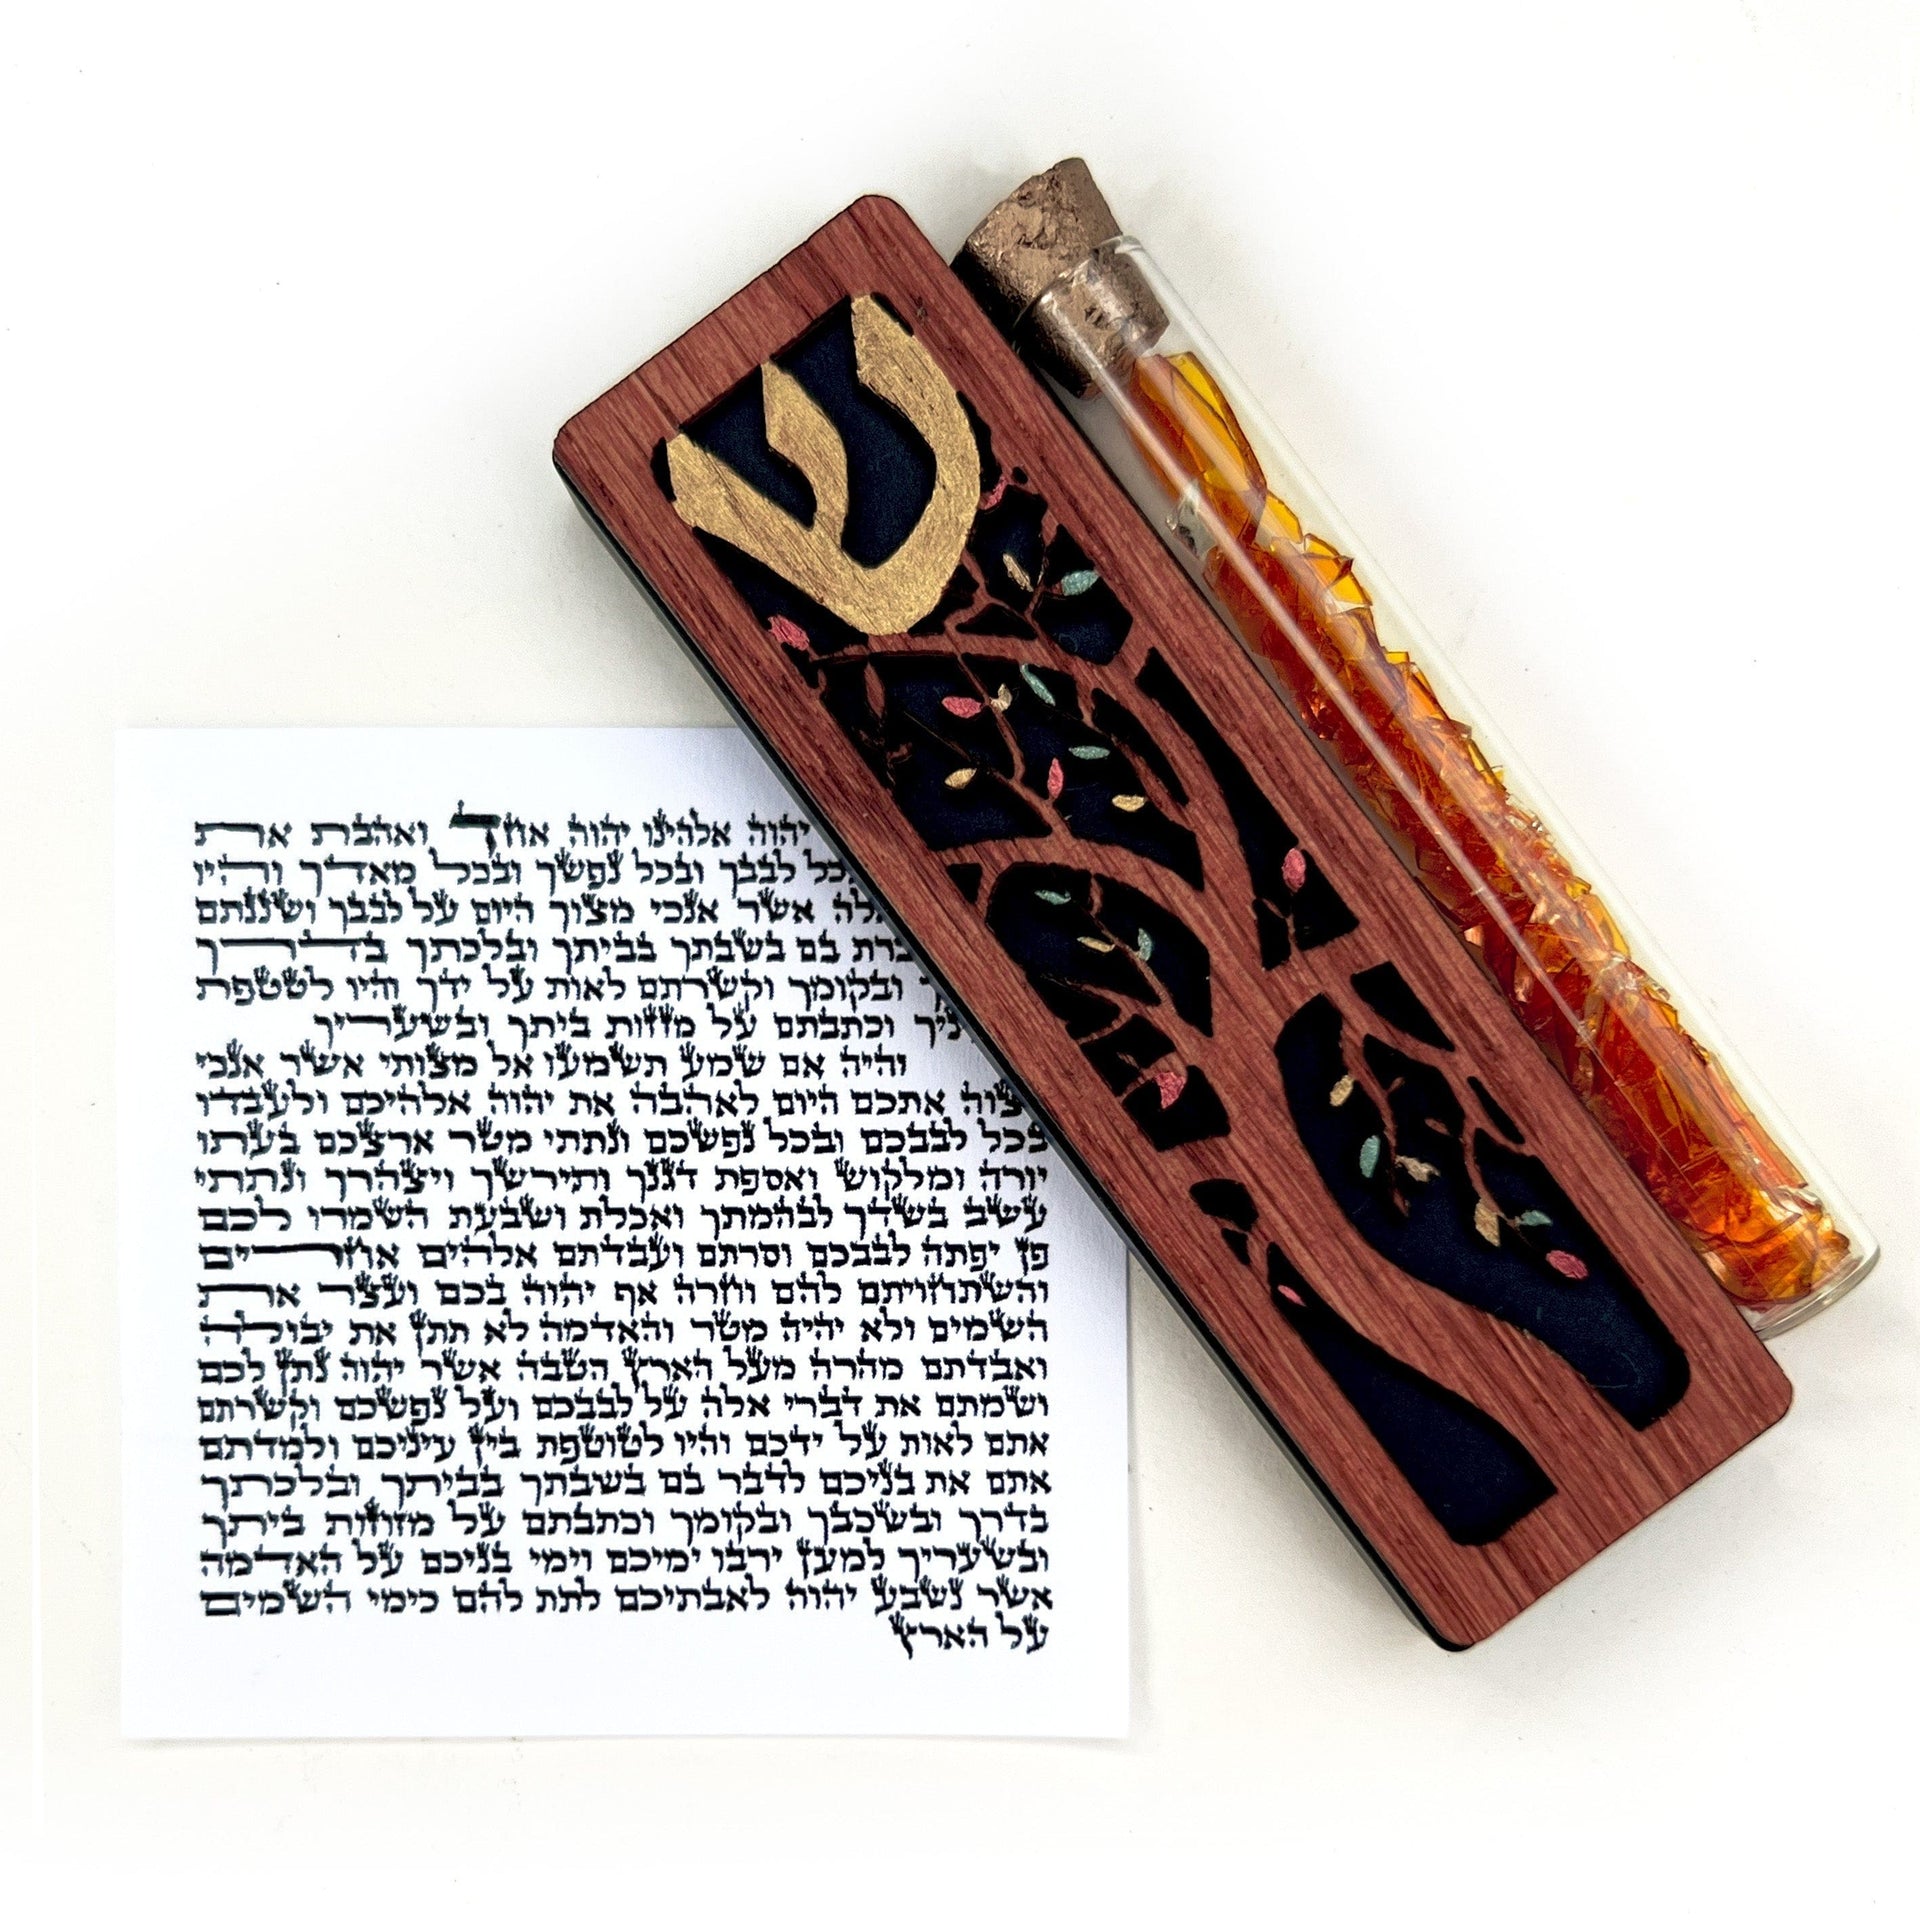 ש
יהוה אלהינו יהוה אחד ואהבת את
לבבך ובכל נפשך ובכל מאדך והיו
אשר אנכי מצוך היום על לבבך ושננתם
בם בשבתך בביתך ובלכתך בדרך
ובקומך וקשרתם לאות על ידך והיו לטטפת
וכתבתם על מזוזות ביתך ובשעריך
והיה אם שמע תשמעו אל מצותי אשר אנכי
אתכם היום לאהבה את יהוה אלהיכם ולעבדו
בכל לבבכם ובכל נפשכם ונתתי מטר ארצכם בעתו
יורה ומלקוש ואספת דגנך ותירשך ויצהרך ונתתי
עשב בשדך לבהמתך ואכלת ושבעת השמרו לכם
פן יפתה לבבכם וסרתם ועבדתם אלהים אחרים
והשתחויתם להם וחרה אף יהוה בכם ועצר את
השמים ולא יהיה מטר והאדמה לא תתן את יבולה
ואבדתם מהרה מעל הארץ הטבה אשר יהוה נתן לכם
ושמתם את דברי אלה על לבבכם ועל נפשכם וקשרתם
אתם לאות על ידכם והיו לטוטפת בין עיניכם ולמדתם
אתם את בניכם לדבר בם בשבתך בביתך ובלכתך
בדרך ובשכבך ובקומך וכתבתם על מזוזות ביתך
ובשעריך למען ירבו ימיכם וימי בניכם על האדמה
אשר נשבע יהוה לאבתיכם לתת להם כימי השמים
על הארץ